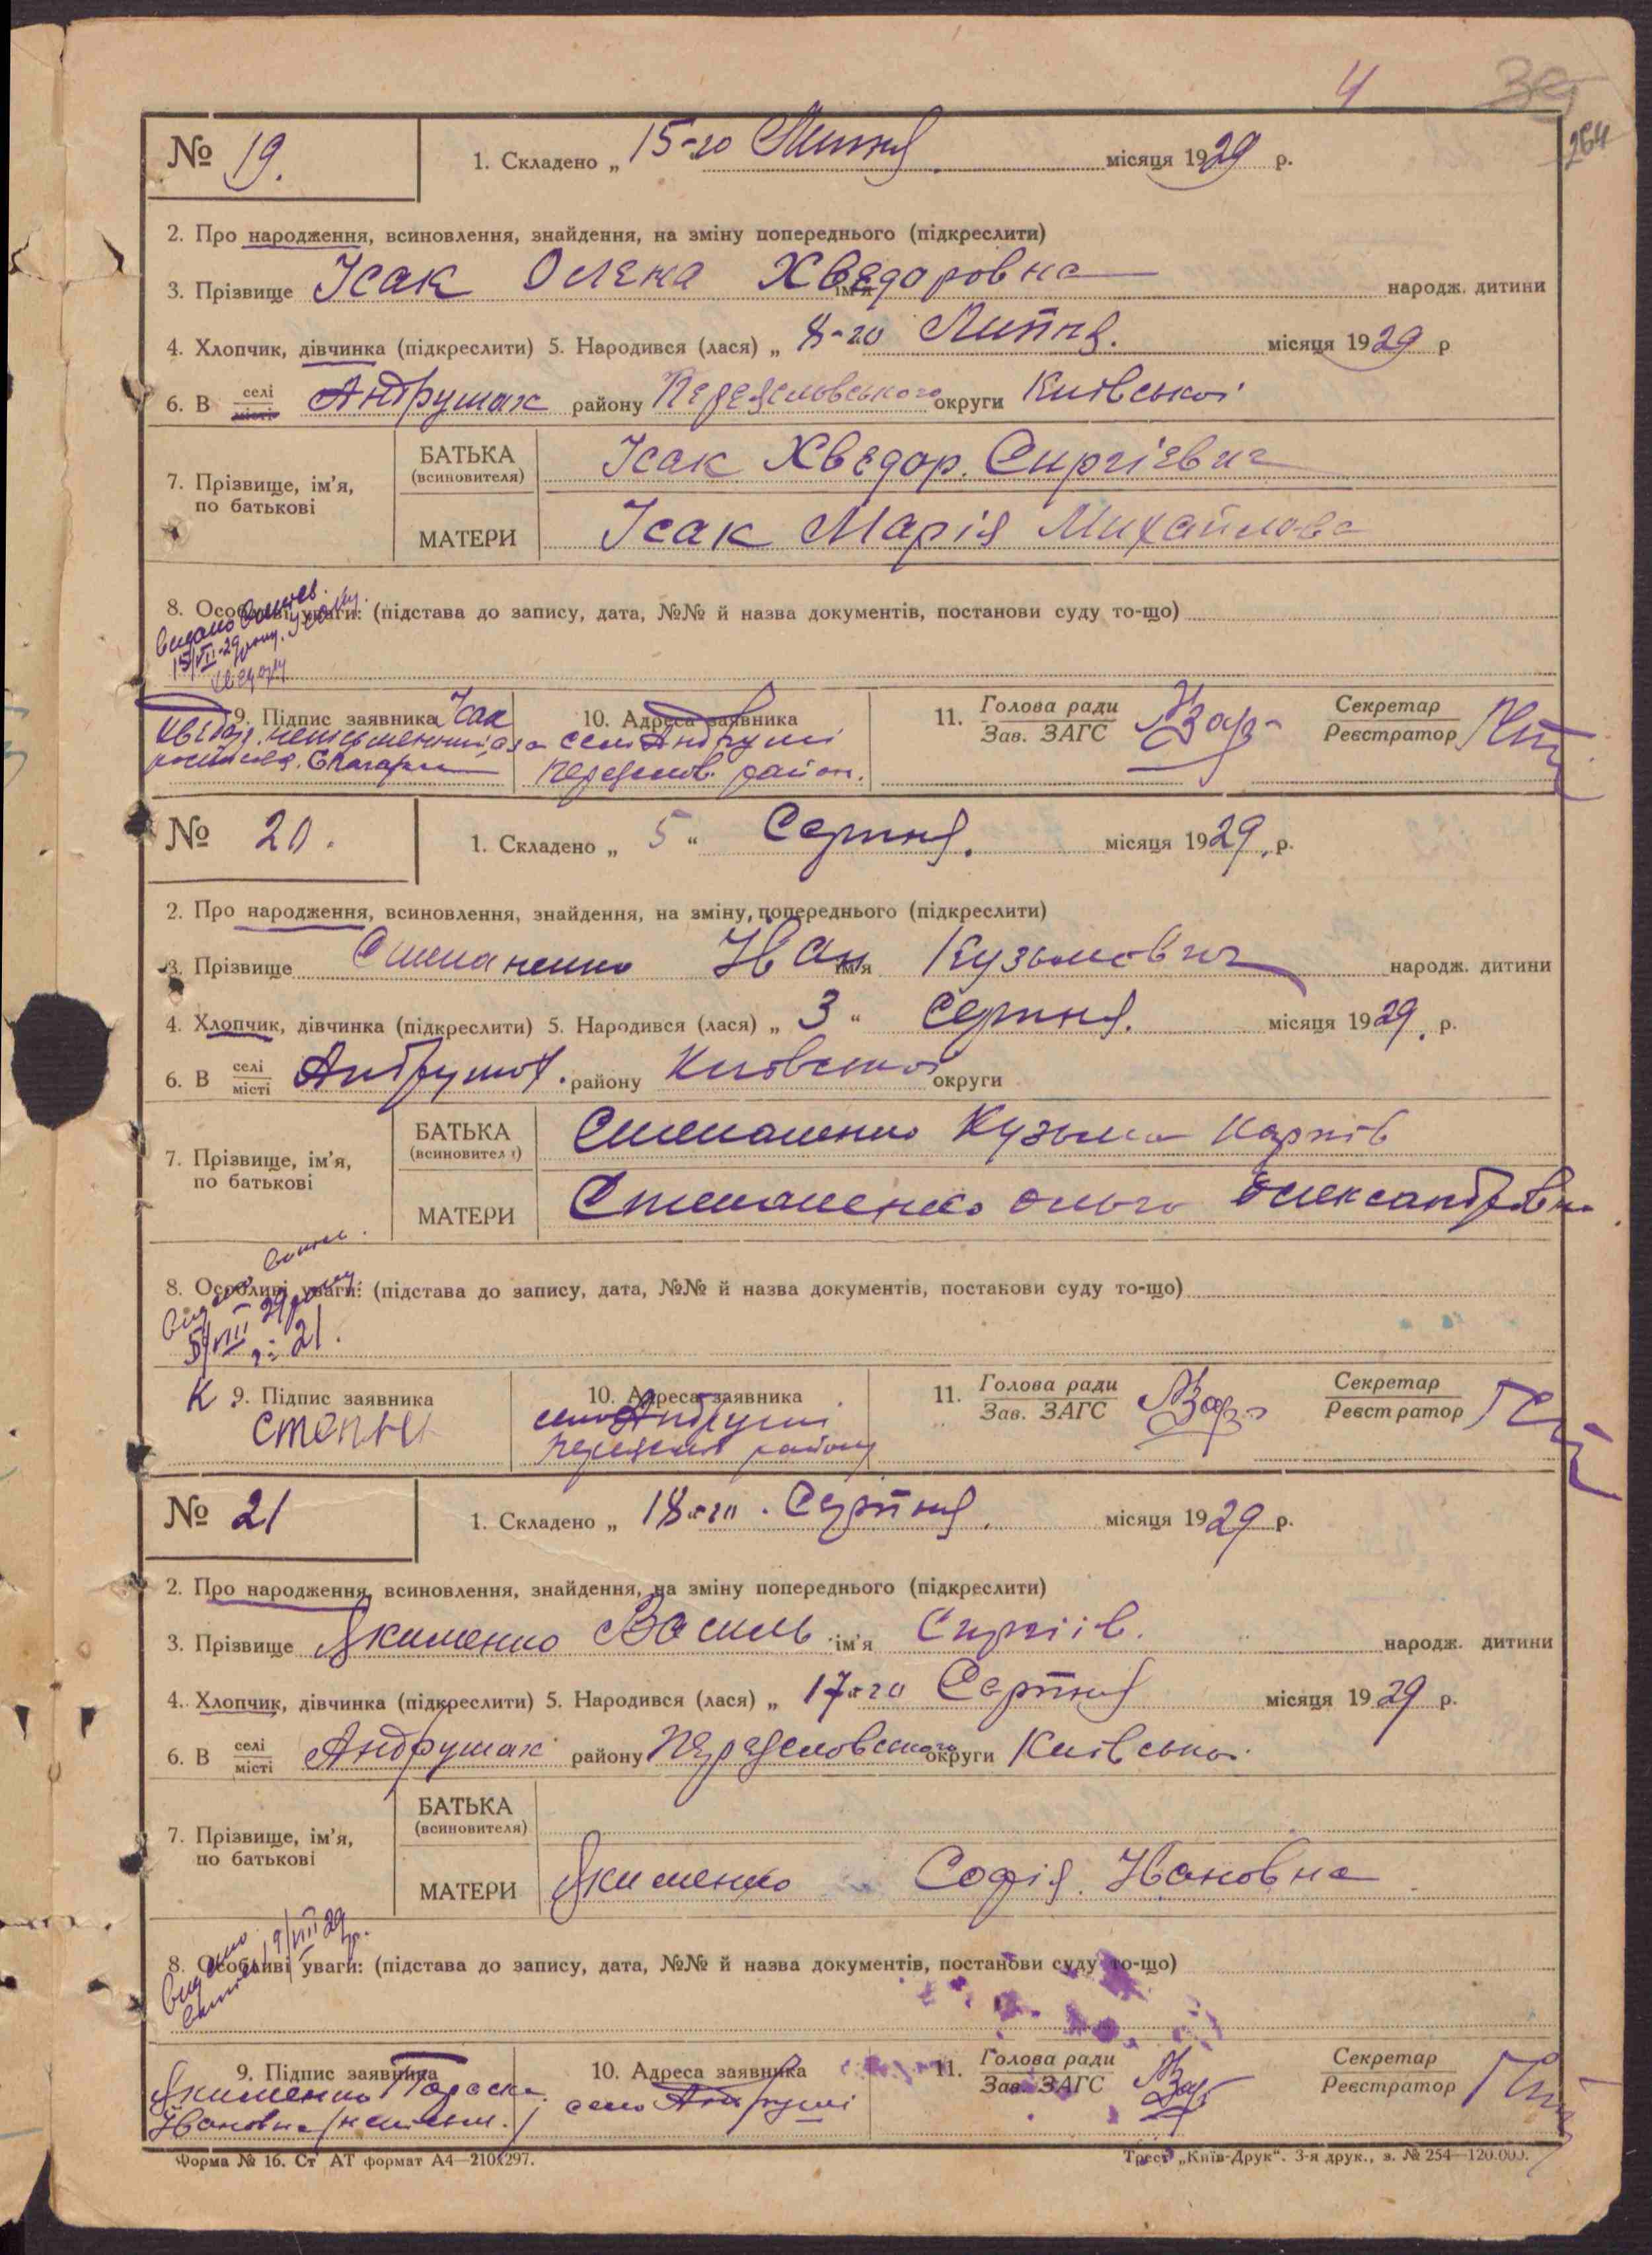 4 39
264
№ 19. 1. Складено „ 15-го Липня місяця 1929 р.
2. Про народження, всиновлення, знайдення, на зміну попереднього (підкреслити)
3. Прізвище Ісак Олена Хведоровна ім'я народж. дитини
4. Хлопчик, дівчинка (підкреслити) 5. Народився (лася) „ 8-го Липня. місяця 1929 р
6. В селі місті Андрушах району Переяславського округи Київської
7. Прізвище, ім'я, по батькові
БАТЬКА (всиновителя) Ісак Хведор. Сиргієвич
МАТЕРИ Ісак Марія Михайлова
8. Особливі уваги: (підстава до запису, дата, №№ й назва документів, постанови суду то-що)
15/VII-29
9. Підпис заявника Ісак
10. Адреса заявника
село Андруші
район.
11. Голова ради
Зав. ЗАГС
Секретар
Реєстратор
№ 20. 1. Складено „ 5 “ Серпня. місяця 1929, р.
2. Про народження, всиновлення, знайдення, на зміну попереднього (підкреслити)
3. Прізвище Степаненко Іван ім'я Кузьмович народж. дитини
4. Хлопчик, дівчинка (підкреслити) 5. Народився (лася) „ 3 “ Серпня. місяця 1929. р.
6. В селі місті Андрушах. району Київської округи
7. Прізвище, ім'я, по батькові
БАТЬКА (всиновителя) Степаненко Кузьма Карпів
МАТЕРИ Степаненко Ольга Олександрівна
8. Особливі уваги: (підстава до запису, дата, №№ й назва документів, постанови суду то-що)
5/VIII 29 року
21.
К 9. Підпис заявника
10. Адреса заявника
село Андруші
району
11. Голова ради
Зав. ЗАГС
Секретар
Реєстратор
№ 21 1. Складено „ 18-го Серпня. місяця 1929 р.
2. Про народження, всиновлення, знайдення, на зміну попереднього (підкреслити)
3. Прізвище Якименко Василь ім'я Сиргіів. народж. дитини
4. Хлопчик, дівчинка (підкреслити) 5. Народився (лася) „ 17-го Серпня місяця 1929 р.
6. В селі місті Андрушах району Переяславського округи Київської
7. Прізвище, ім'я, по батькові
БАТЬКА (всиновителя)
МАТЕРИ Якименко Софія Ивановна
8. Особливі уваги: (підстава до запису, дата, №№ й назва документів, постанови суду то-що)
9. Підпис заявника
Якименко Параска
Ивановна
10. Адреса заявника
село Андруші
11. Голова ради
Зав. ЗАГС
Секретар
Реєстратор
Форма № 16. Ст АТ формат А4—210х297.
Трест „Київ-Друк“. 3-я друк., з. № 254—120.000.